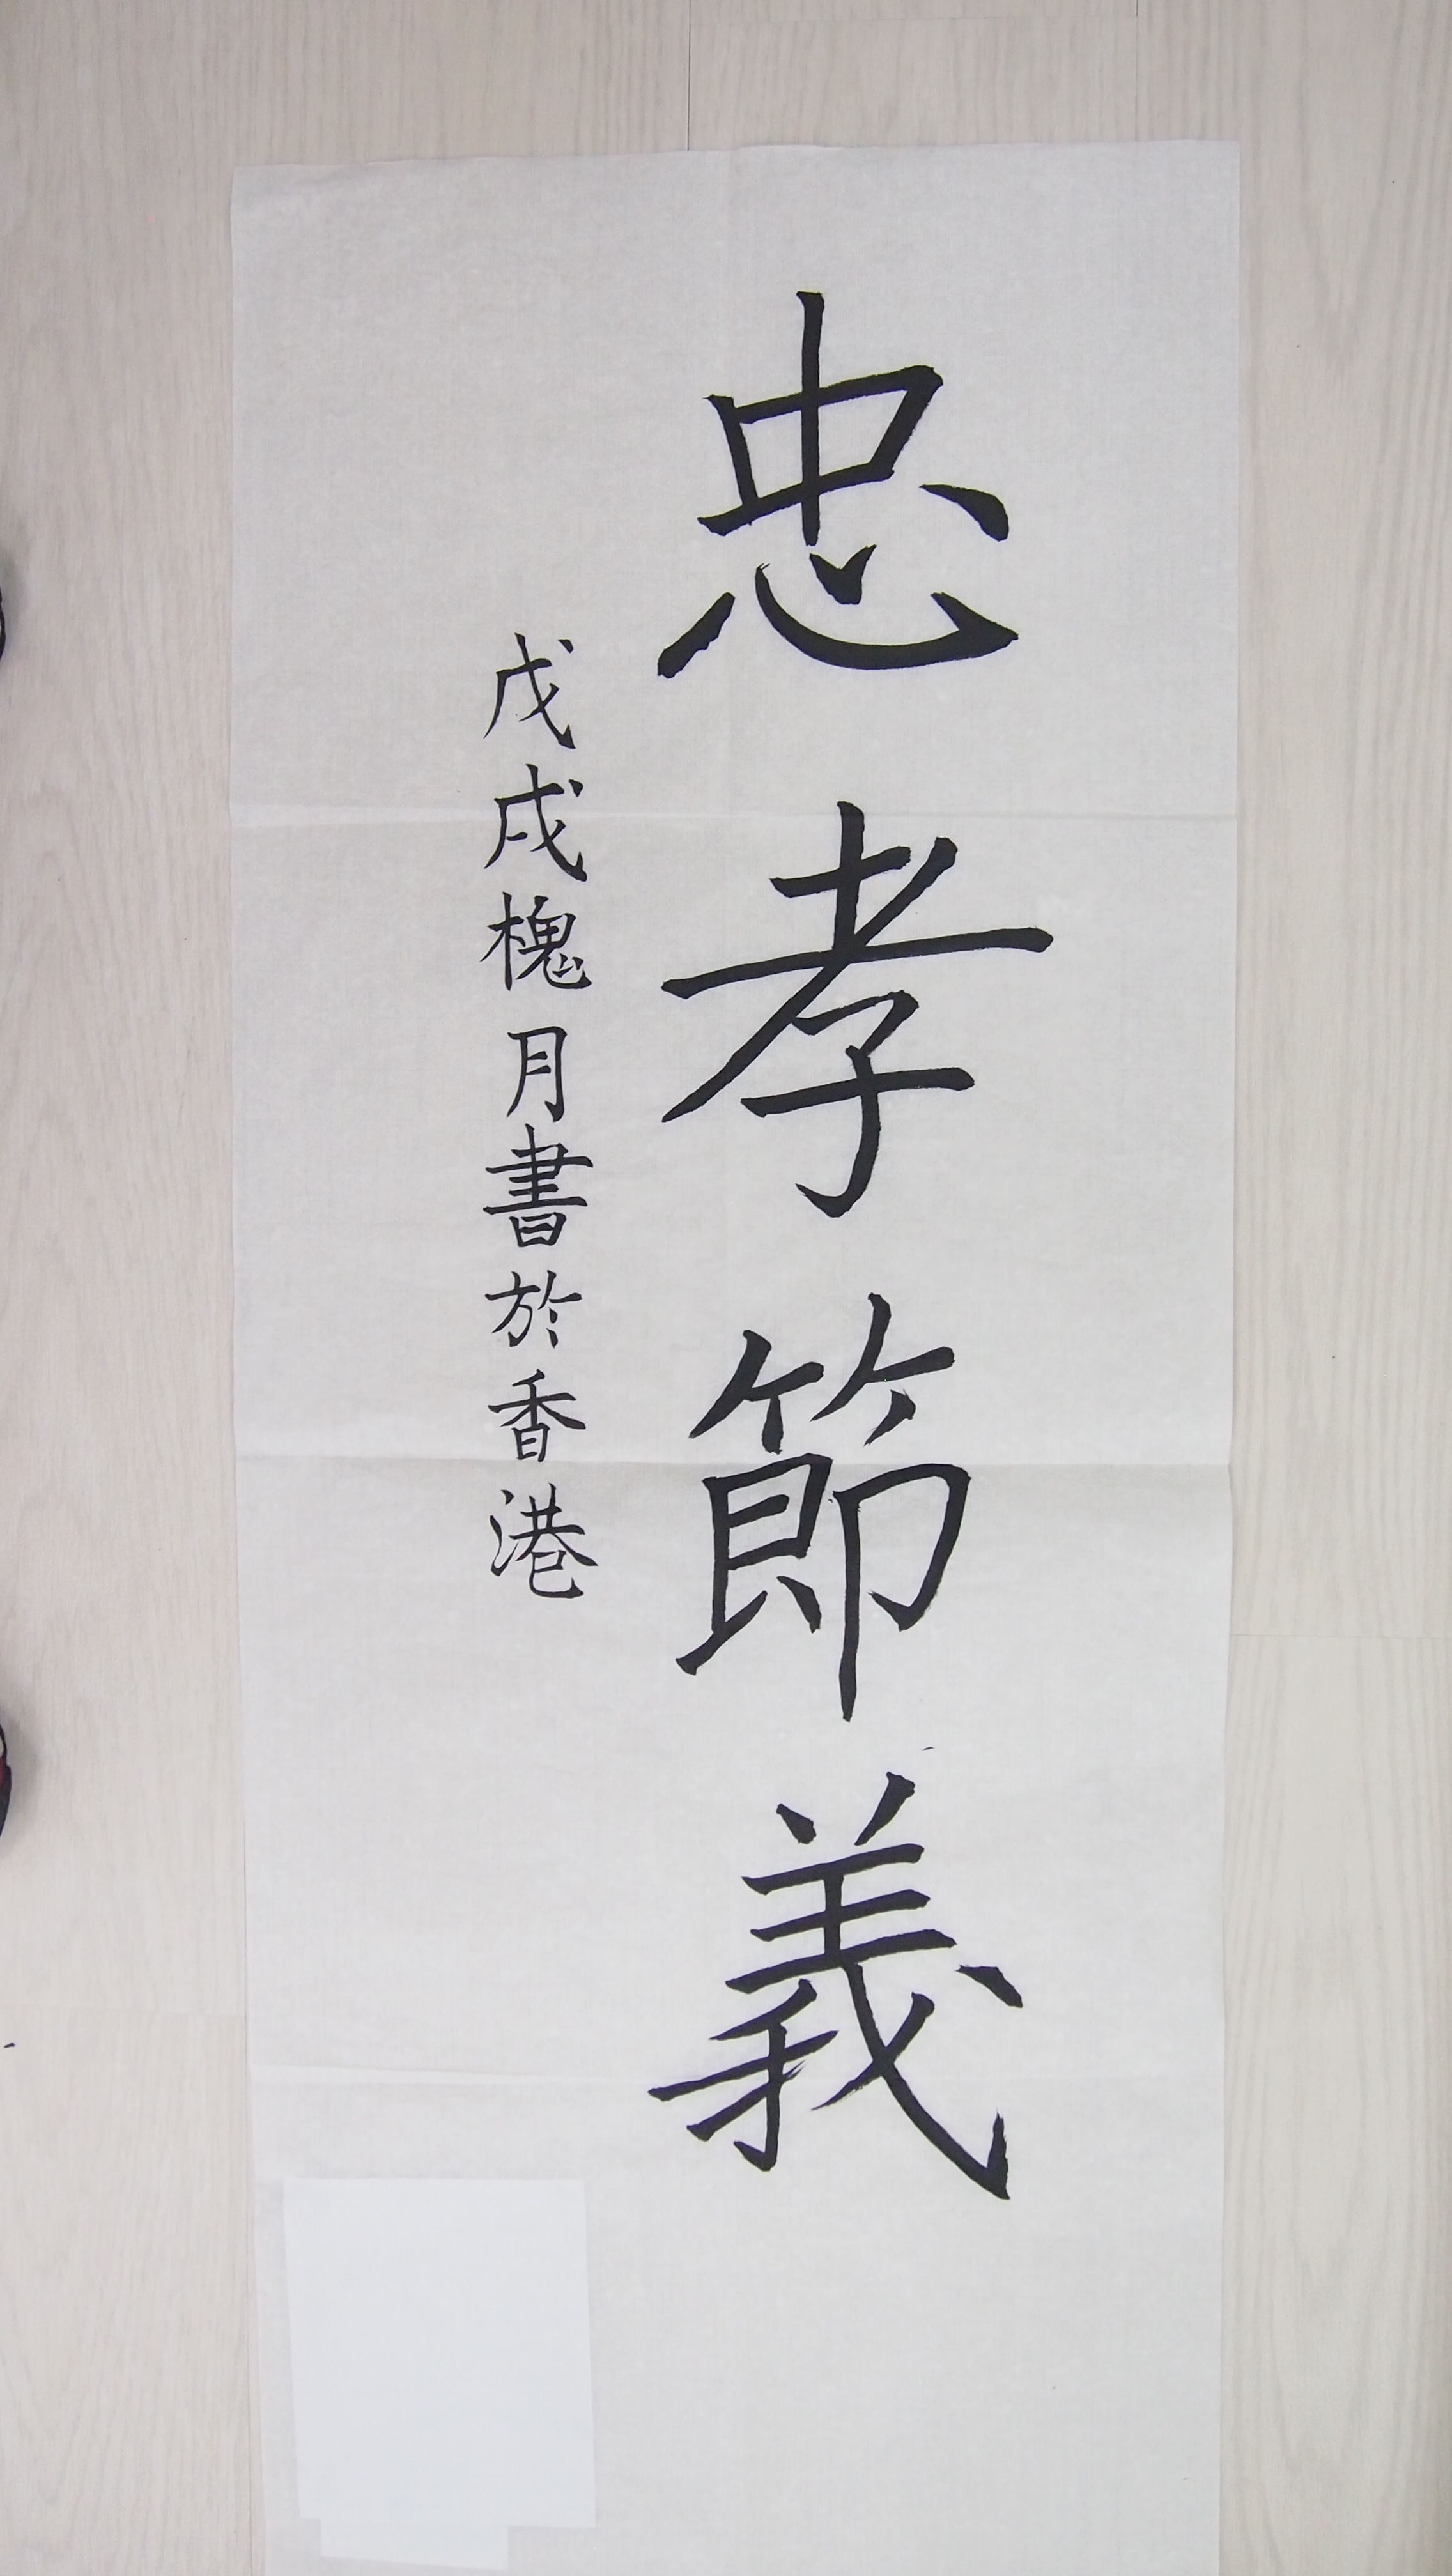 忠孝節義
戊戌槐月書於香港